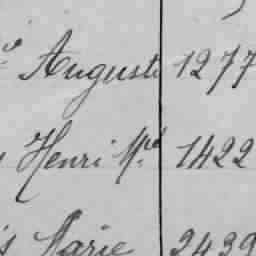 Auguste 1277
Henri 1422
Marie 2439